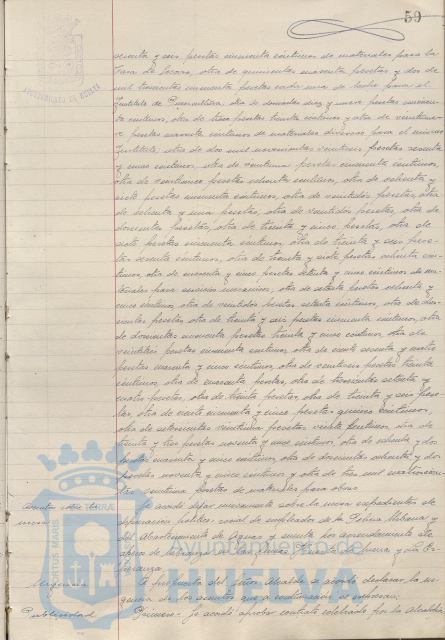 59
AYUNTAMIENTO DE HUELVA
sesenta y seis pesetas cincuenta céntimos de materiales para la
Casa de Socorro, otra de quinientas noventa pesetas y dos de
mil trescientas cincuenta pesetas cada una de leche para el
Instituto de Puericultura, otra de doscientas diez y nueve pesetas
céntimos, otra de tres pesetas treinta céntimos y otra de
pesetas cuarenta céntimos de materiales diversos para el mismo
Instituto, otra de dos mil novecientas veintinueve pesetas sesenta
y cinco céntimos, otra de veintiuna pesetas cincuenta céntimos,
otra de pesetas ochenta céntimos, otra de ochenta y
siete pesetas cincuenta céntimos, otra de veintidos pesetas, otra
de ochenta y una pesetas, otra de veintidos pesetas, otra de
doscientas pesetas, otra de treinta y cinco pesetas, otra de
siete pesetas cincuenta céntimos, otra de treinta y seis pese-
tas céntimos, otra de treinta y siete pesetas cén-
timos, otra de noventa y cinco pesetas setenta y cinco céntimos de ma-
teriales para servicios mecánicos, otra de setenta pesetas ochenta y
cinco céntimos, otra de veintidos pesetas setenta céntimos, otra de
pesetas, otra de treinta y seis pesetas cincuenta céntimos, otra
de doscientas noventa pesetas treinta y cinco céntimos, otra de
veintisiete pesetas cincuenta céntimos, otra de ciento sesenta y cuatro
pesetas cuarenta y cinco céntimos, otra de pesetas treinta
céntimos, otra de cuarenta pesetas, otra de trescientas setenta y
cuatro pesetas, otra de treinta pesetas, otra de treinta y seis pese-
tas, otra de ciento cincuenta y cinco pesetas quince céntimos,
otra de setecientas veintiuna pesetas veinte céntimos, otra de
treinta y tres pesetas noventa y cinco céntimos, otra de ochenta y dos
pesetas cuarenta y cinco céntimos, otra de doscientas ochenta y dos
pesetas noventa y cinco céntimos y otra de tres mil
veintiuna pesetas de materiales para obras.
Asuntos sobre la mesa Se acordó dejar nuevamente sobre la mesa expedientes de
depuración político social de empleados de la Policía Urbana
del Abastecimiento de Aguas y cuenta por arrendamiento de
Urgencia A propuesta del señor Alcalde se acordó declarar la ur-
gencia de los asuntos que a continuación se expresan:
Publicidad Primero.- Se acordó aprobar contrato celebrado por la Alcaldía
PORTUS MARIS
TERRAE
Ayuntamiento de
HUELVA